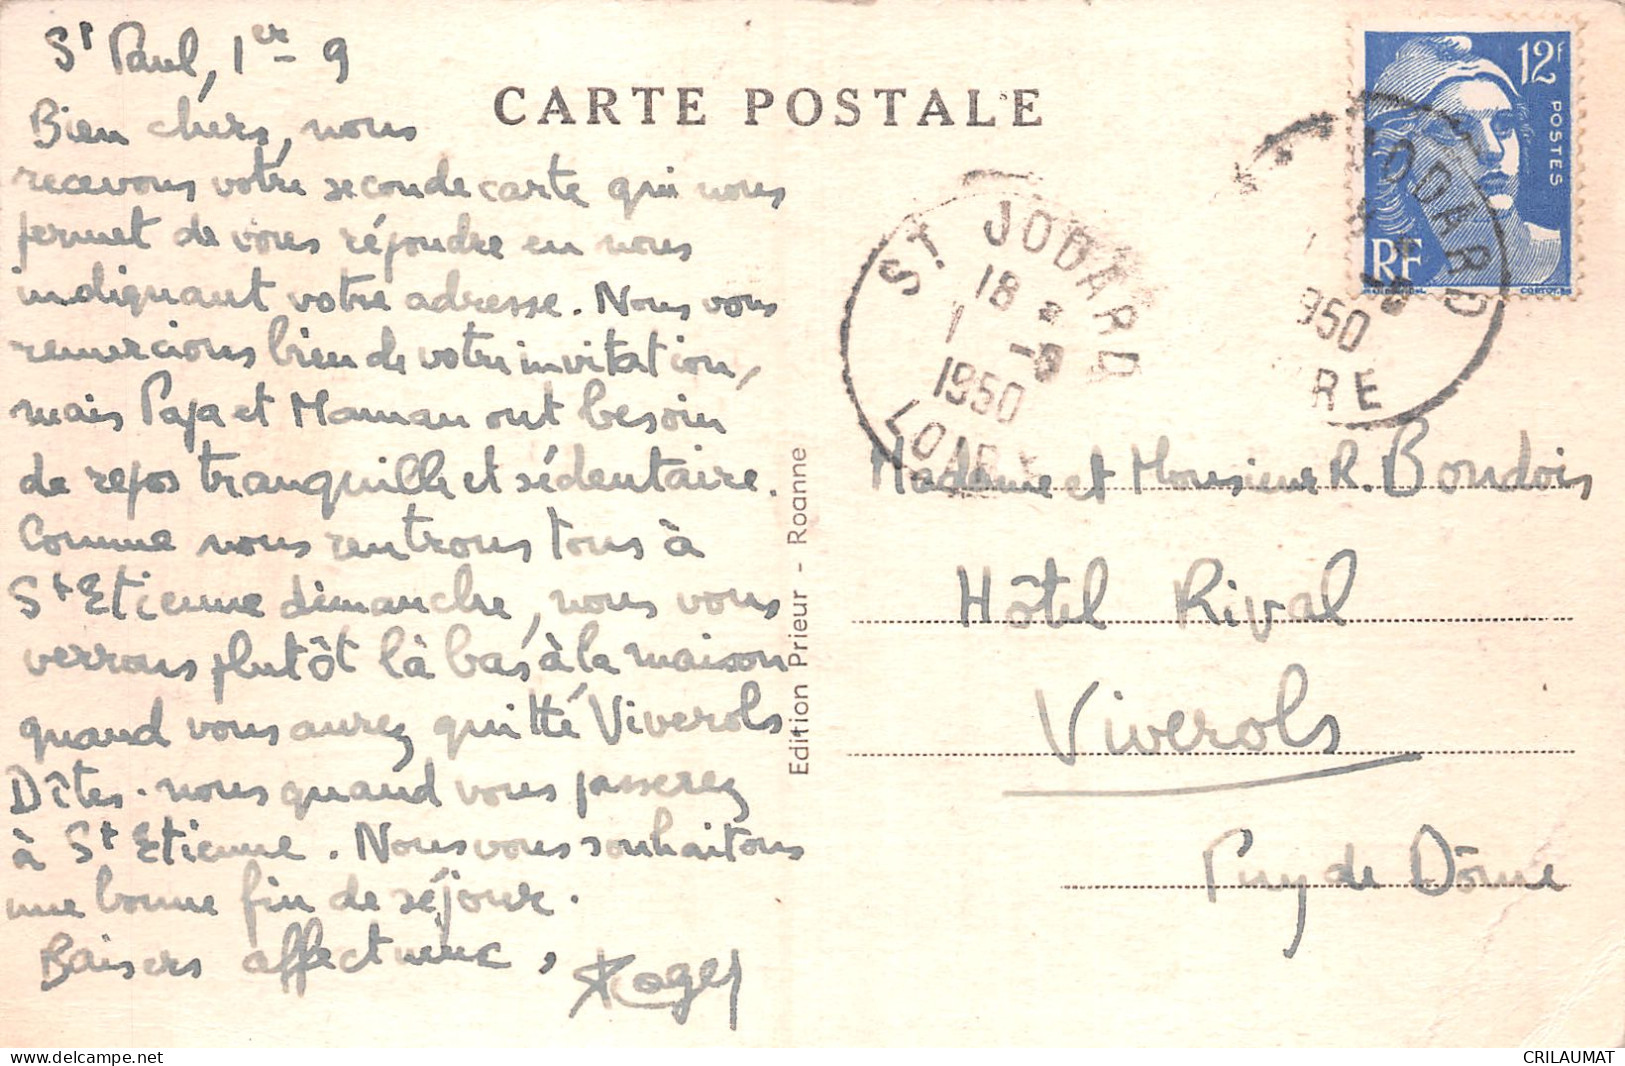 St Paul, 1er - 9
Bien chers, nous
recevons votre seconde carte qui nous
permet de vous répondre en nous
indiquant votre adresse. Nous vous
remercions bien de votre invitation,
mais Papa et Maman ont besoin
de repos tranquille et sédentaire.
Comme nous rentrons tous à
St Etienne dimanche, nous vous
verrons plutôt là bas à la maison
quand vous aurez quitté Viverols
Dîtes-nous quand vous passerez
à St Etienne. Nous vous souhaitons
une bonne fin de séjour.
Baisers affectueux, Roger
CARTE POSTALE
Edition Prieur - Roanne
12F
POSTES
RF
ST. JODARD
18
1 -9
1950
LOIRE
JODARD
950
IRE
Madame et Monsieur R. Boudois
Hôtel Rival
Viverols
Puy de Dôme
CRILAUMAT